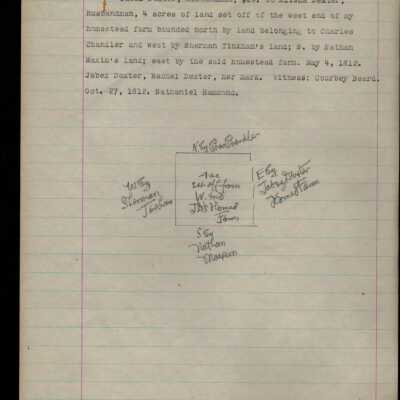 Husbandman, 4 acres of land set off of the west end of my
homestead farm bounded north by land belonging to Charles
Chandler and west by Sherman Tinkham's land; S. by Nathan
Maxim's land; east by the said homestead farm. May 4, 1812.
Jabez Duxter, Rachel Duxter, her mark. Witness: Courbey Beard.
Oct. 27, 1812. Nathaniel Hammond.
N. By Chandler
W By
Sherman
Tinkham
4 ac
set off from
W. End
Jabs Homes
Farm
E By
Jabez Duxter
Home Farm
S By
Nathan
Maxim